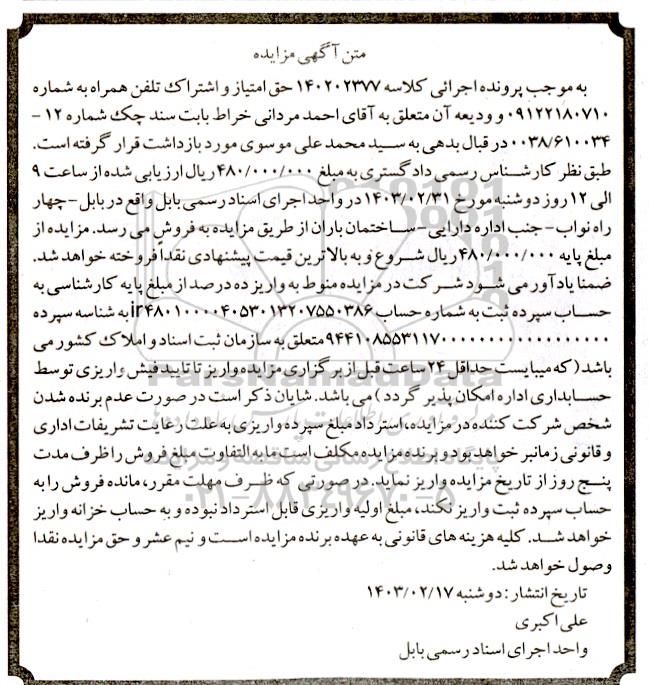 متن آگهی مزایده
به موجب پرونده اجرائی کلاسه ۱۴۰۲۰۲۳۷۷ حق امتیاز و اشتراک تلفن همراه به شماره
۰۹۱۲۲۱۸۰۷۱۰ و ودیعه آن متعلق به آقای احمد مردانی خراط بابت سند چک شماره ۱۲ –
۰۰۳۸/۶۱۰۰۳۴ در قبال بدهی به سید محمد علی موسوی مورد بازداشت قرار گرفته است.
طبق نظر کارشناس رسمی دادگستری به مبلغ ۴۸۰/۰۰۰/۰۰۰ ریال ارزیابی شده از ساعت ۹
الی ۱۲ روز دوشنبه مورخ ۱۴۰۳/۰۲/۳۱ در واحد اجرای اسناد رسمی بابل واقع در بابل – چهار
راه نواب – جنب اداره دارایی – ساختمان باران از طریق مزایده به فروش می رسد. مزایده از
مبلغ پایه ۴۸۰/۰۰۰/۰۰۰ ریال شروع و به بالاترین قیمت پیشنهادی نقداً فروخته خواهد شد.
ضمنا یادآور می شود شرکت در مزایده منوط به واریز ده درصد از مبلغ پایه کارشناسی به
حساب سپرده ثبت به شماره حساب ir۴۸۰۱۰۰۰۰۴۰۵۳۰۱۳۲۰۷۵۵۰۳۸۶ به شناسه سپرده
۹۴۴۱۰۸۵۵۳۱۱۷۰۰۰۰۰۰۰۰۰۰۰۰۰۰۰۰۰ متعلق به سازمان ثبت اسناد و املاک کشور می
باشد( که میبایست حداقل ۲۴ ساعت قبل از برگزاری مزایده واریز تا تایید فیش واریزی توسط
حسابداری اداره امکان پذیر گردد ) می باشد. شایان ذکر است در صورت عدم برنده شدن
شخص شرکت کننده در مزایده، استرداد مبلغ سپرده واریزی به علت رعایت تشریفات اداری
و قانونی زمانبر خواهد بود و برنده مزایده مکلف است ما به التفاوت مبلغ فروش را ظرف مدت
پنج روز از تاریخ مزایده واریز نماید. در صورتی که ظرف مهلت مقرر، مانده فروش را به
حساب سپرده ثبت واریز نکند، مبلغ اولیه واریزی قابل استرداد نبوده و به حساب خزانه واریز
خواهد شد. کلیه هزینه های قانونی به عهده برنده مزایده است و نیم عشر و حق مزایده نقدا
وصول خواهد شد.
تاریخ انتشار : دوشنبه ۱۴۰۳/۰۲/۱۷
علی اکبری
واحد اجرای اسناد رسمی بابل
ParsNamadData
پایگاه اطلاع رسانی مناقصه و مزایده
۰۲۱-۸۸۳۴۹۶۷۰-۵